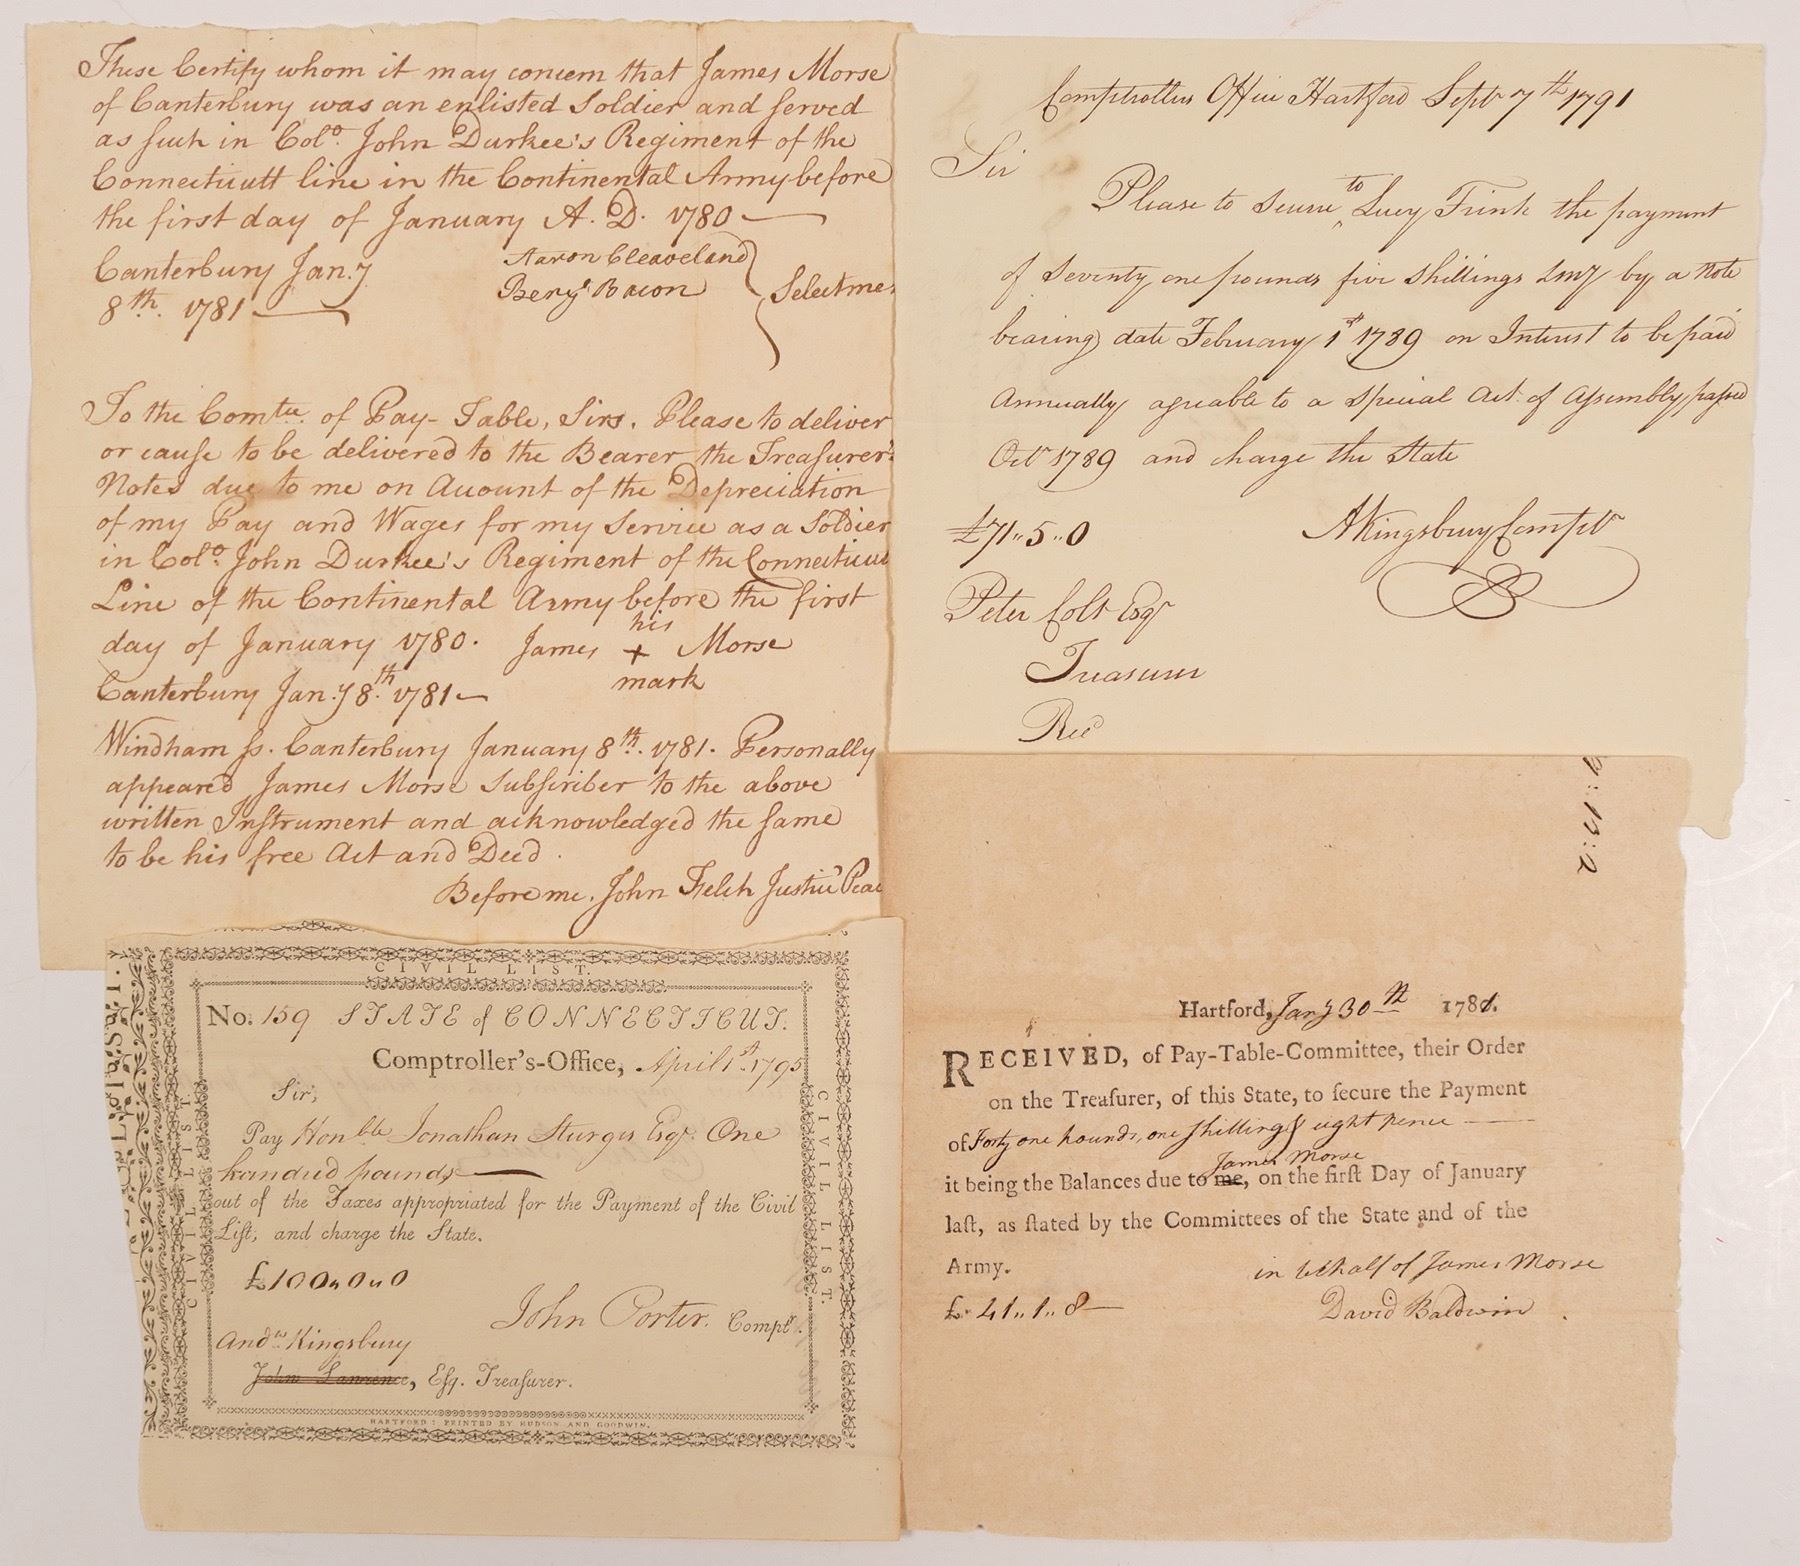 These Certify whom it may concern that James Morse
of Canterbury was an enlisted Soldier and served
as such in Colo. John Durkee's Regiment of the
Connecticutt line in the Continental Army before
the first day of January A. D. 1780
Canterbury Jan.y
8th. 1781
Aaron Cleaveland
Benj.a Bacon
Selectme
To the Comtee. of Pay-Table, Sirs. Please to deliver
or cause to be delivered to the Bearer the Treasurer's
Notes due to me on Account of the Depreciation
of my Pay and Wages for my Service as a Soldier
in Colo. John Durkee's Regiment of the Connecticut
Line of the Continental Army before the first
day of January 1780. James his + mark Morse
Canterbury Jan.y 8.th 1781
Windham ss. Canterbury January 8th. 1781. Personally
appeared James Morse Subscriber to the above
written Instrument and acknowledged the same
to be his free Act and Deed.
Before me, John Felch Justice Peac
Comptrollers Office Hartford Septr 7th 1791
Sir
Please to secure to Lucy Frink the payment
of Seventy one pounds five shillings LMy by a Note
bearing date February 1st 1789 on Interest to be paid
Annually agreable to a Special Act of Assembly passed
Octr 1789 and charge the State
£71..5..0
AKingsbury Comptr
Peter Colt Esqr
Treasurer
Recd
CIVIL LIST.
CIVIL LIST.
CIVIL LIST.
No. 159 STATE of CONNECTICUT.
Comptroller's-Office, April 1st. 1795
Sir,
Pay Honble Jonathan Sturges Esqr. One
hundred pounds
out of the Taxes appropriated for the Payment of the Civil
List, and charge the State.
£100,,0,,0
John Porter. Comptr.
Andw Kingsbury
John Lawrence, Esq. Treasurer.
HARTFORD: PRINTED BY HUDSON AND GOODWIN.
Hartford, Jany 30th 1781.
RECEIVED, of Pay-Table-Committee, their Order
on the Treasurer, of this State, to secure the Payment
of Forty one pounds, one shilling & eight pence
James Morse
it being the Balances due to me, on the first Day of January
last, as stated by the Committees of the State and of the
Army.
in behalf of James Morse
£. 41..1..8
David Baldwin